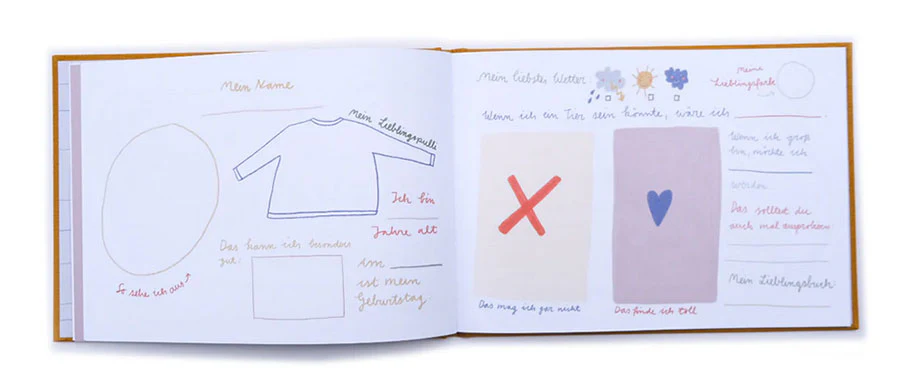 Mein Name
Mein Lieblingspulli
Ich bin
Jahre alt
Das kann ich besonders
gut:
am
ist mein
Geburtstag
So sehe ich aus
Mein liebstes Wetter:
meine
Lieblingsfarbe
Wenn ich ein Tier sein könnte, wäre ich
Wenn ich groß
bin, möchte ich
werden.
Das solltest du
auch mal ausprobieren
Mein Lieblingsbuch:
Das mag ich gar nicht
Das finde ich toll